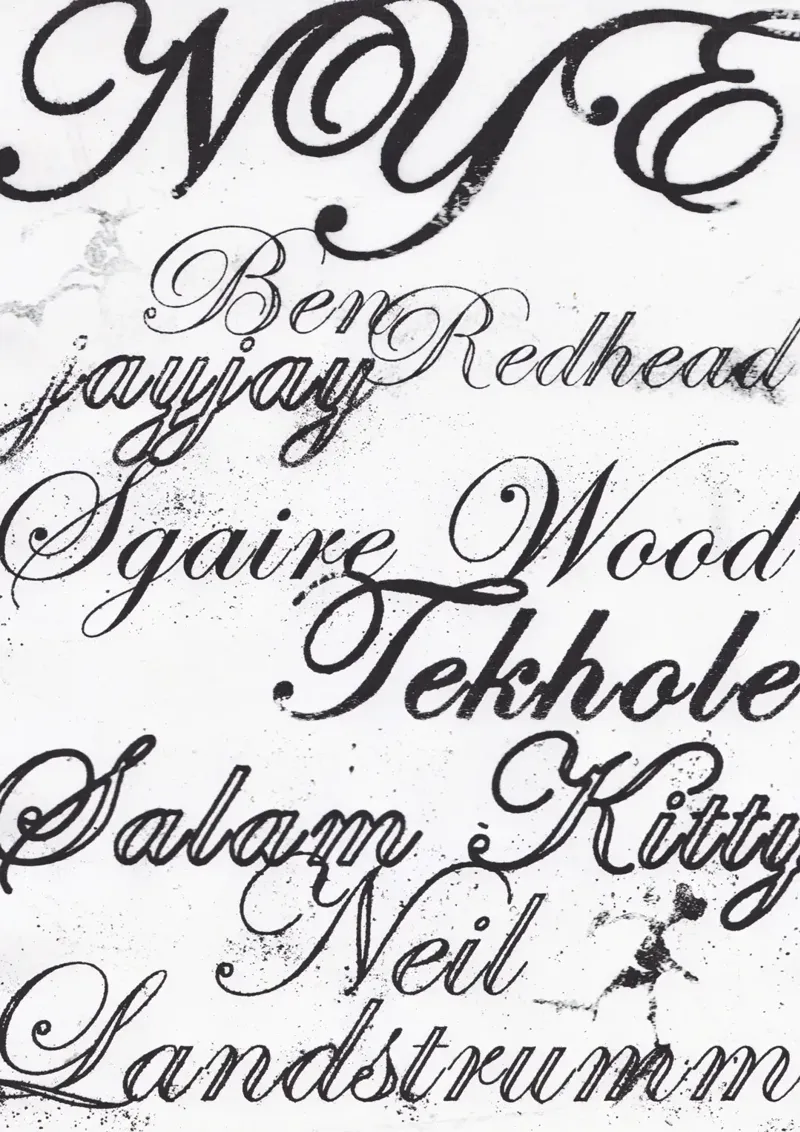 NYE
Ben Redhead
jayjay
Sgaire Wood
Tekhole
Salam Kitty
Neil
Landstrumm